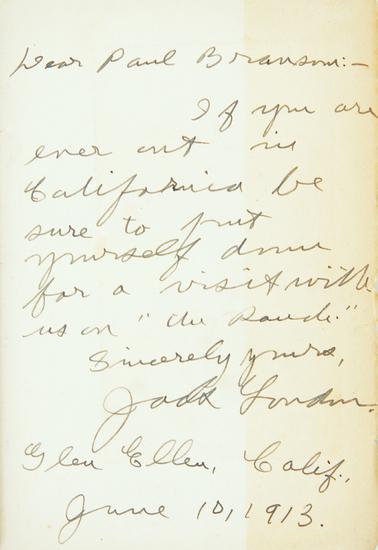 Dear Paul Bransom:-
If you are
ever out in
California be
sure to put
yourself down
for a visit with
us on "the Ranch."
Sincerely yours,
Jack London.
Glen Ellen, Calif.,
June 10, 1913.